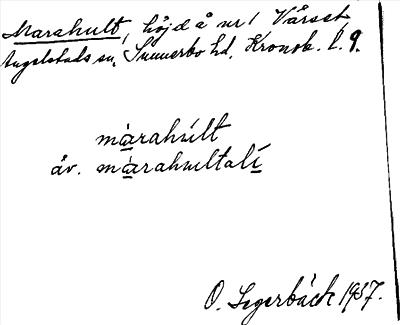 Marahult, höjd å nr 1 Vårset
Angelstads sn, Sunnerbo hd, Kronob. l. 9.
màrahúlt
äv. màrahultalì
O. Segerbäck 1937.